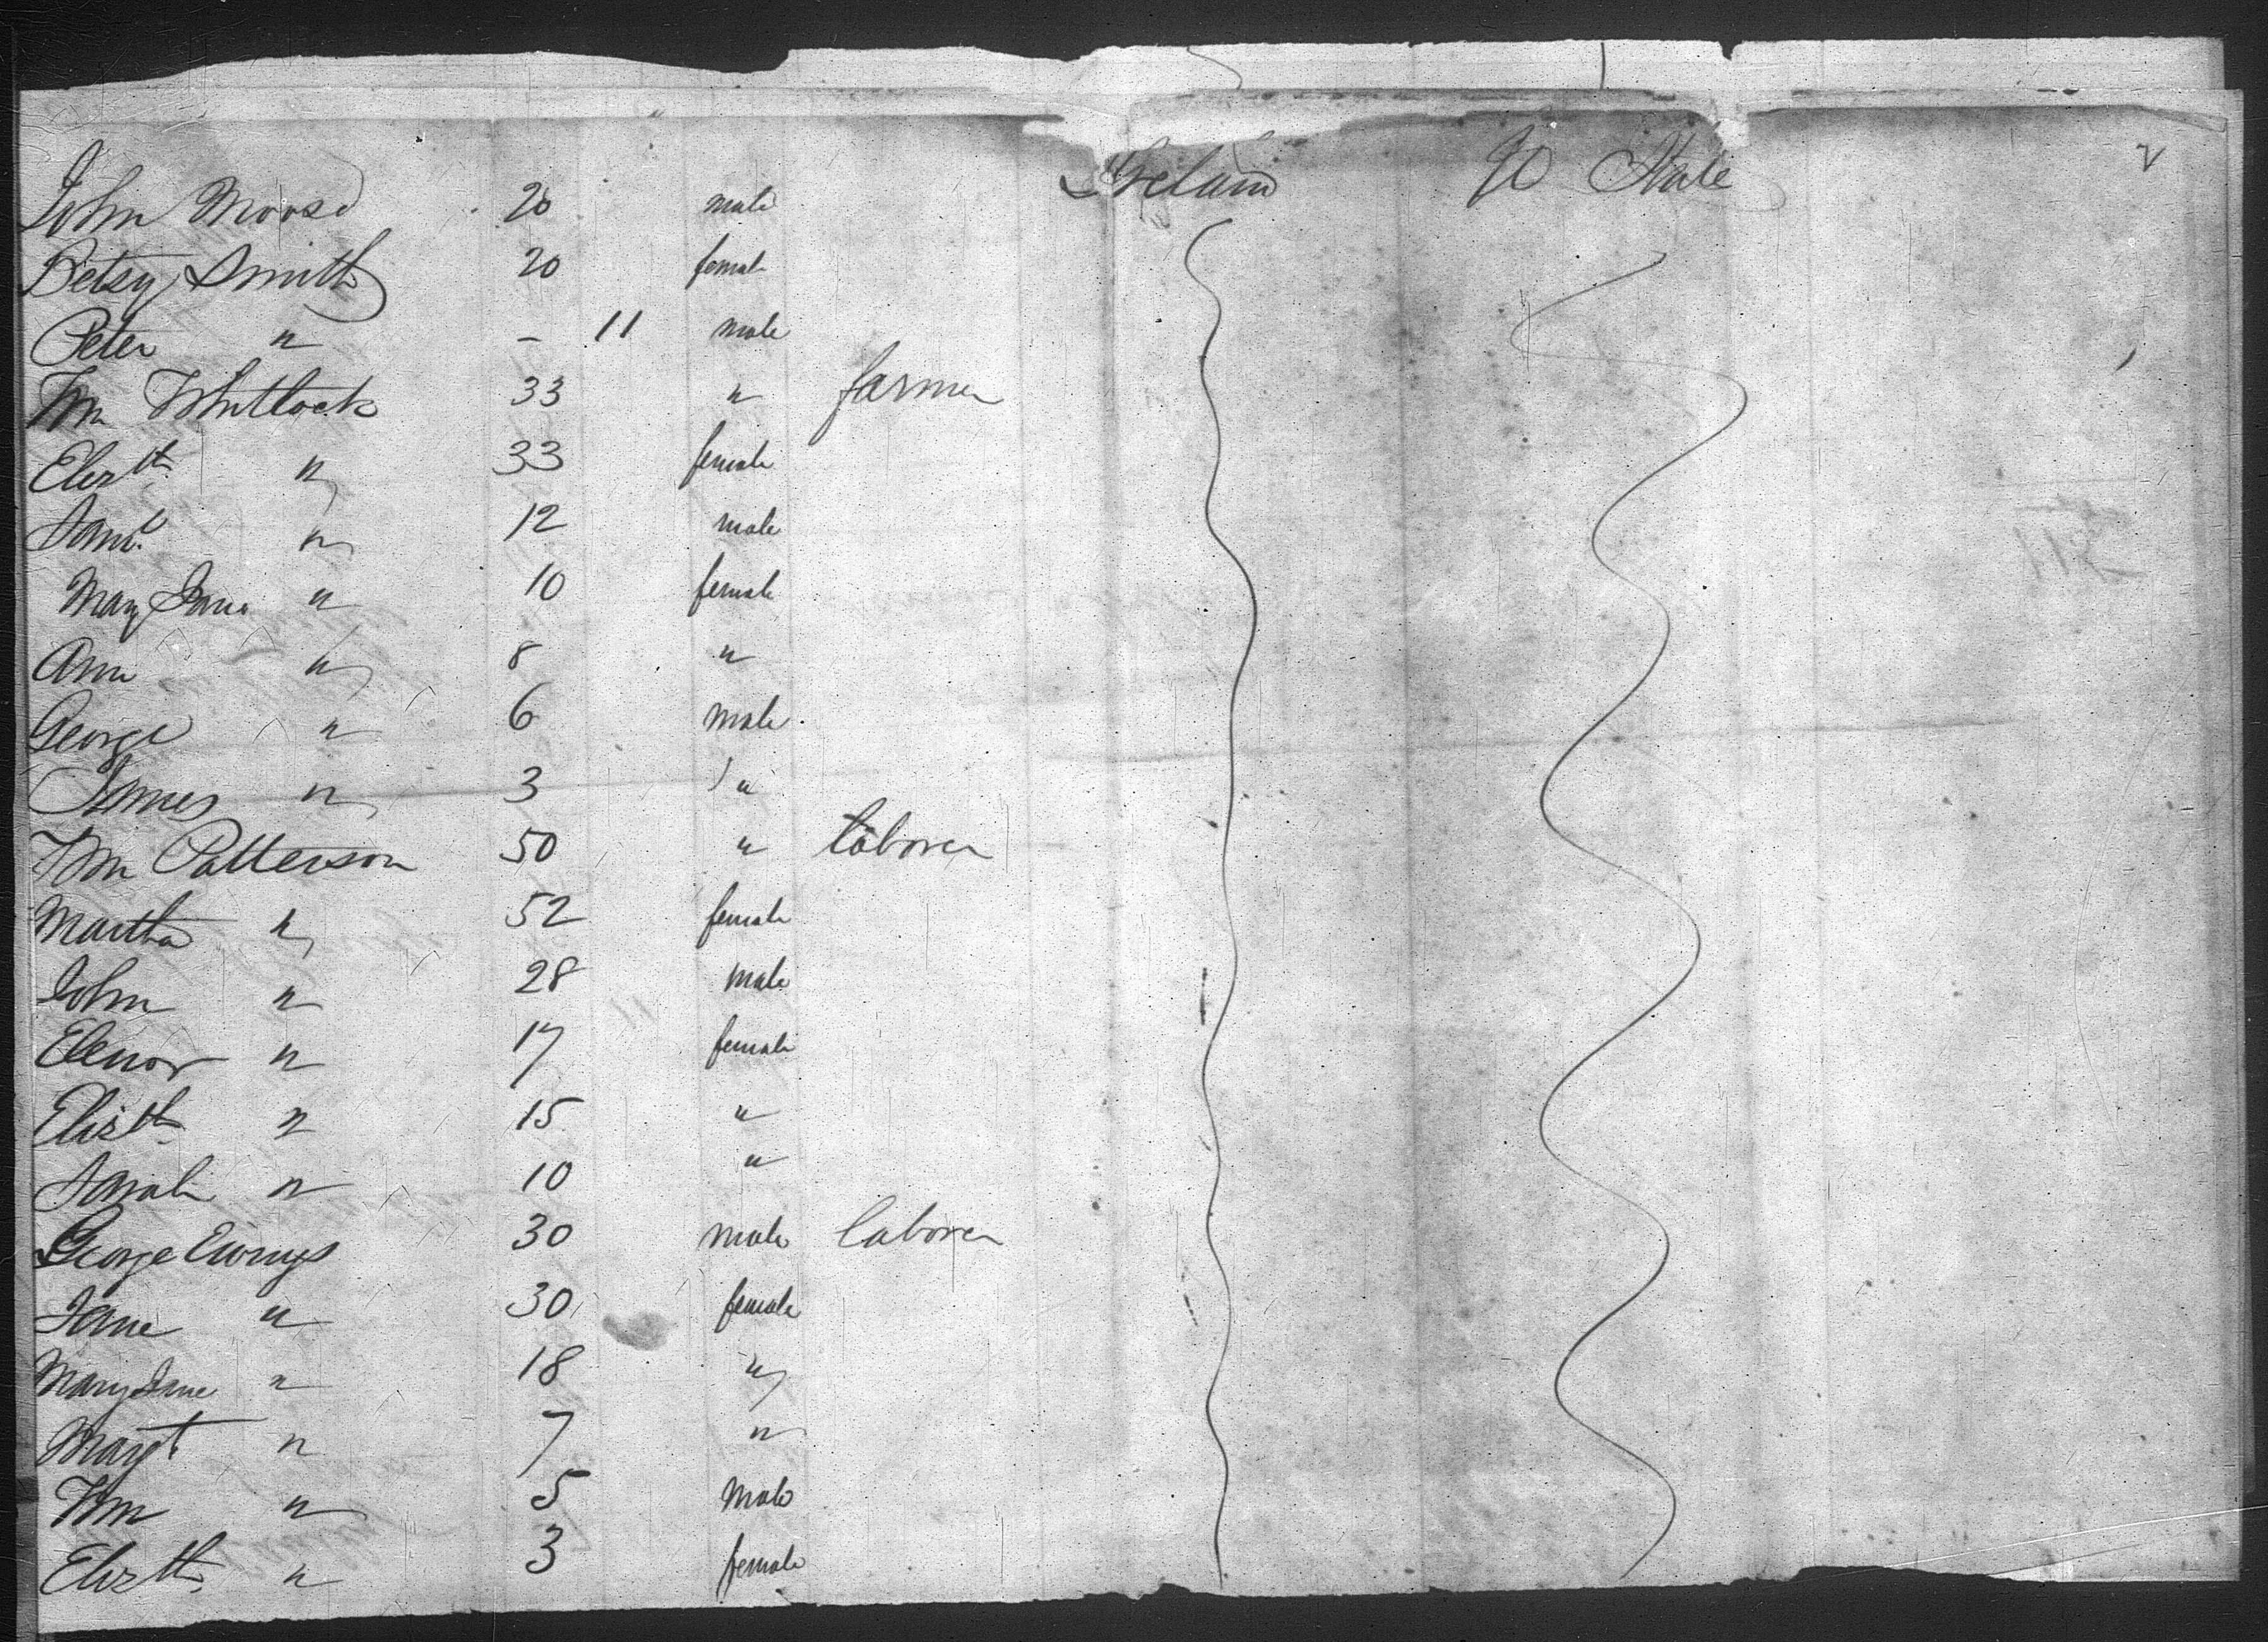 John Moose 20 male Ireland State
Betsy Smith 20 female
Peter " - 11 male
Wm Whitlock 33 " farmer
Elizth " 33 female
Saml " 12 male
Mary Jane " 10 female
Ann " 8 "
George " 6 male
James " 3 "
Wm Patterson 50 " laborer
Martha " 52 female
John " 28 male
Elenor " 17 female
Elizth " 15 "
Sarah " 10 "
George 30 male laborer
Jane " 30 female
Mary Jane " 18 "
Margt " 7 "
Wm " 5 male
Elizth " 3 female